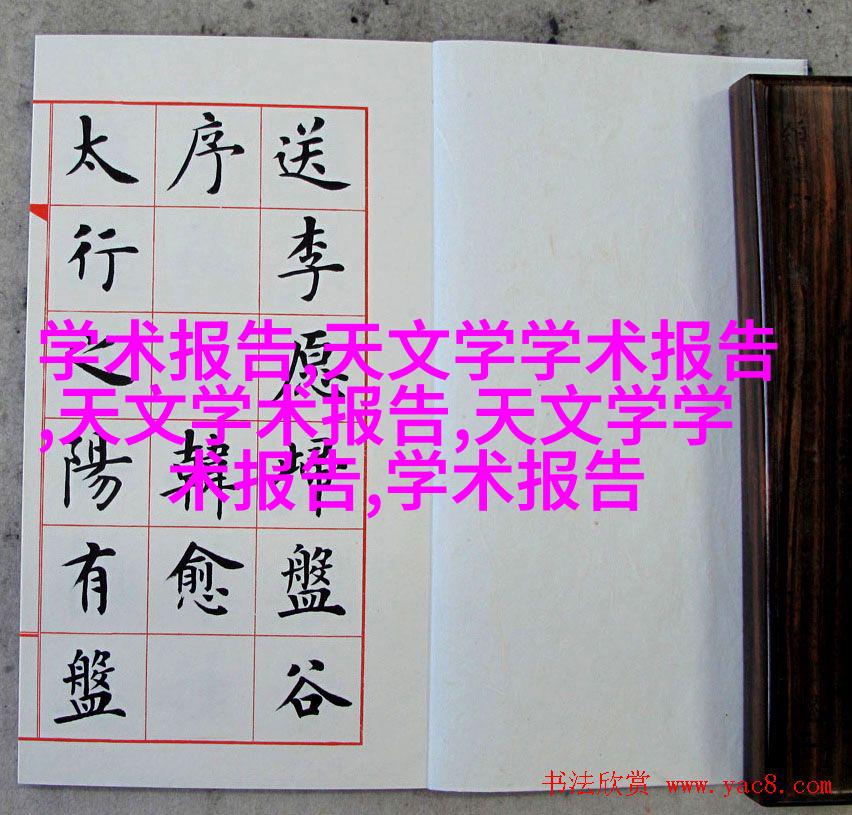 送李愿歸盤谷
序 韓愈
太行之陽有盤
学术报告,天文学学术报告
,天文学术报告,天文学学
术报告,学术报告
书法欣赏 www.yac8.com